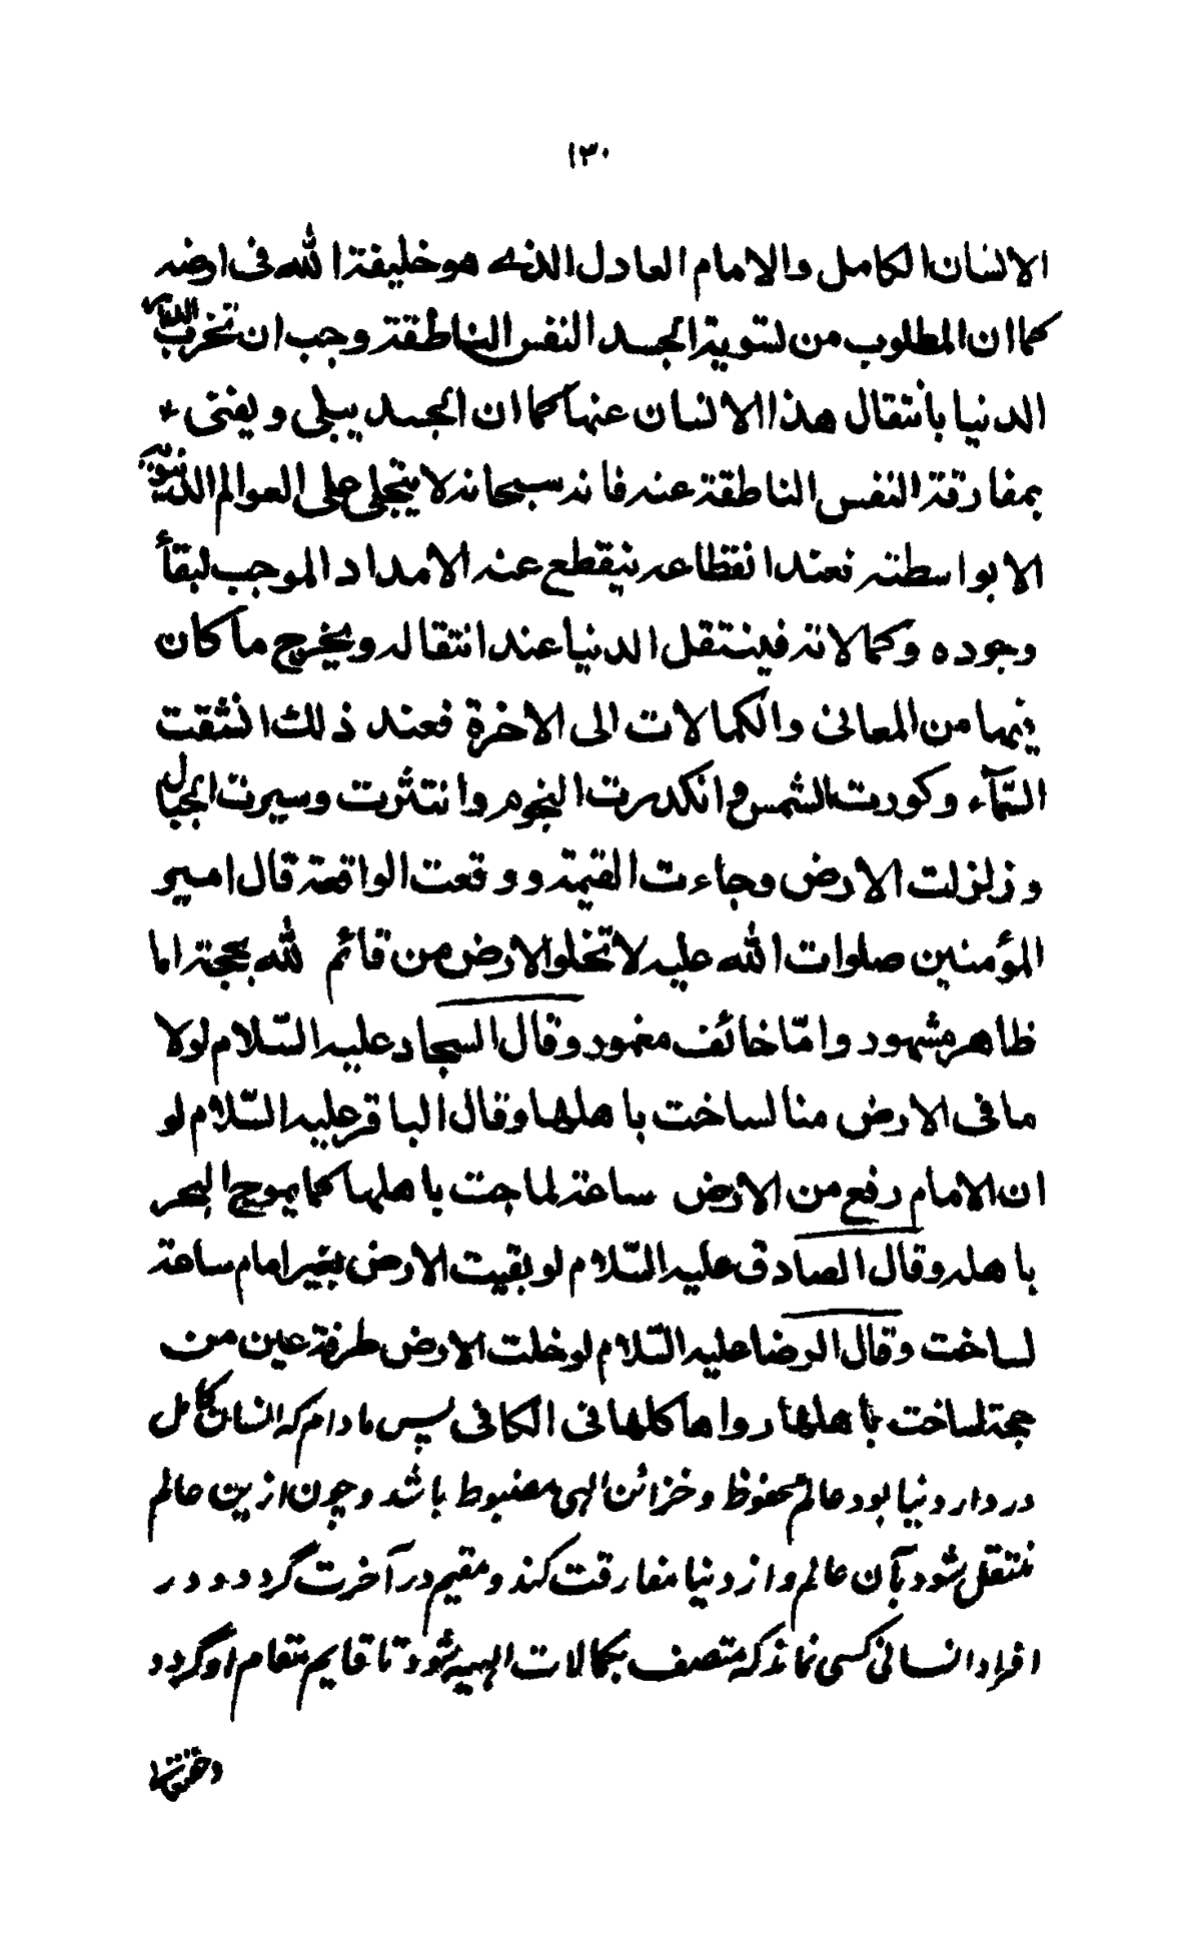 ۱۳۰
الانسان الكامل والامام العادل الذى هو خليفة الله فى ارضه
كما ان المطلوب من تسوية الجسد النفس الناطقة وجب ان تخرب الدار
الدنيا بانتقال هذا الانسان عنها كما ان الجسد يبلى و يفنى
بمفارقة النفس الناطقة عنه فانه سبحانه لا يتجلى على العوالم الدنيوية
الا بواسطته فعند انقطاعه ينقطع عنه الامداد الموجب لبقأ
وجوده و كمالاته فينتقل الدنيا عند انتقاله ويخرج ما كان
فيها من المعانى والكمالات الى الاخرة فعند ذلك انشقت
السّمآء وكورت الشمس وانكدرت النجوم وانتثرت وسيرت الجبال
وزلزلت الارض وجاءت القيمة ووقعت الواقعة قال امير
المؤمنين صلوات الله عليه لا تخلو الارض من قائم لله بحجة اما
ظاهر مشهود وامّا خائف مغمور وقال السجاد عليه السّلام لولا
ما فى الارض منا لساخت باهلها وقال الباقر عليه السّلام لو
ان الامام رفع من الارض ساعة لماجت باهلها كما يموج البحر
باهله وقال الصادق عليه السّلام لو بقيت الارض بغير امام ساعة
لساخت وقال الرضا عليه السّلام لو خلت الارض طرفة عين من
حجة لساخت باهلها رواها كلها فى الكافى پس مادام كه انسان كامل
در دار دنيا بود عالم محفوظ و خزائن الهى مضبوط باشد و چون ازين عالم
منتقل شود بآن عالم و از دنيا مفارقت كند و مقيم در آخرت گردد و در
افراد انسانى كسى نماند كه متصف بكمالات الهيه شود تا قايم مقام او گردد